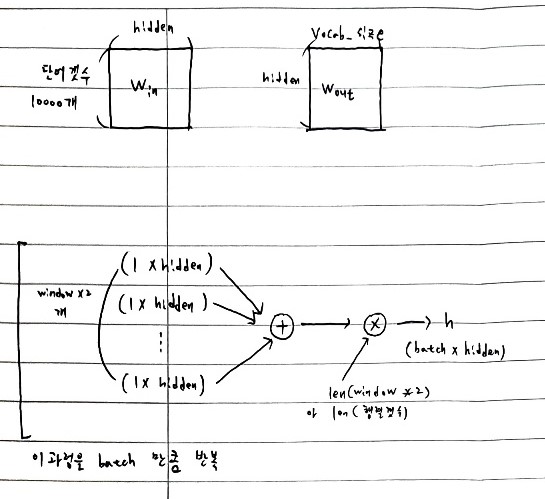 hidden
단어 갯수
10000개
Win
Vocab_size
hidden
Wout
window x2
개
(1 x hidden)
(1 x hidden)
⋮
(1 x hidden)
+
x
h
(batch x hidden)
len(window x2)
아 len(행렬갯수)
이 과정을 batch 만큼 반복